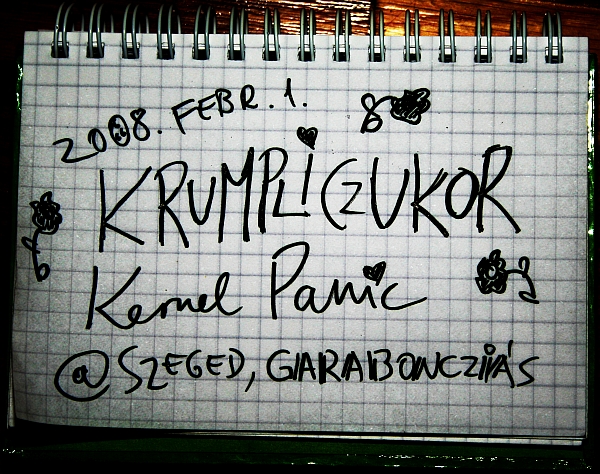 2008. FEBR. 1.
KRUMPLICZUKOR
Kernel Panic
@ SZEGED, GARABONCZIÁS